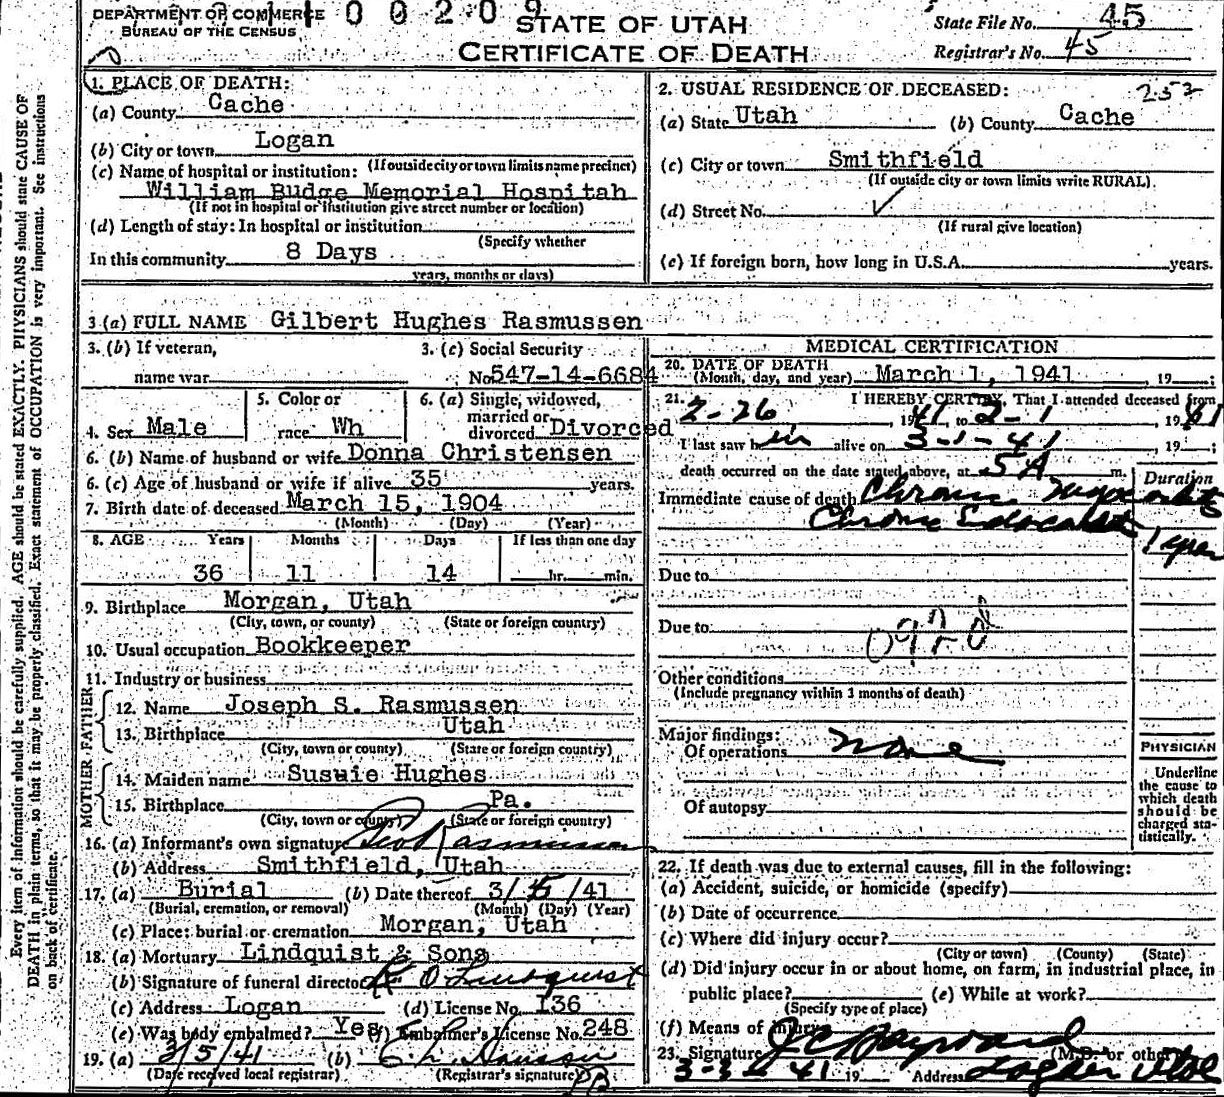 DEPARTMENT OF COMMERCE
BUREAU OF THE CENSUS
0 0 2 0 9
STATE OF UTAH
CERTIFICATE OF DEATH
State File No. 45
Registrar's No. 45
Every item of information should be carefully supplied. AGE should be stated EXACTLY. PHYSICIANS should state CAUSE OF
DEATH in plain terms, so that it may be properly classified. Exact statement of OCCUPATION is very important. See instructions
on back of certificate.
1. PLACE OF DEATH:
(a) County Cache
(b) City or town Logan
(If outside city or town limits name precinct)
(c) Name of hospital or institution:
William Budge Memorial Hospitah
(If not in hospital or institution give street number or location)
(d) Length of stay: In hospital or institution
(Specify whether
In this community 8 Days
years, months or days)
2. USUAL RESIDENCE OF DECEASED: 252
(a) State Utah (b) County Cache
(c) City or town Smithfield
(If outside city or town limits write RURAL)
(d) Street No.
(If rural give location)
(e) If foreign born, how long in U.S.A. years.
3 (a) FULL NAME Gilbert Hughes Rasmussen
3. (b) If veteran,
name war
3. (c) Social Security
No. 547-14-6684
4. Sex Male
5. Color or
race Wh
6. (a) Single, widowed,
married or
divorced Divorced
6. (b) Name of husband or wife Donna Christensen
6. (c) Age of husband or wife if alive 35 years.
7. Birth date of deceased March 15, 1904
(Month) (Day) (Year)
8. AGE Years Months Days If less than one day
36 11 14 hr. min.
9. Birthplace Morgan, Utah
(City, town, or county) (State or foreign country)
10. Usual occupation Bookkeeper
11. Industry or business
FATHER
12. Name Joseph S. Rasmussen
13. Birthplace Utah
(City, town or county) (State or foreign country)
MOTHER
14. Maiden name Susuie Hughes
15. Birthplace Pa.
(City, town or county) (State or foreign country)
16. (a) Informant's own signature Rasmussen
(b) Address Smithfield, Utah
17. (a) Burial (b) Date thereof 3/5/41
(Burial, cremation, or removal) (Month) (Day) (Year)
(c) Place: burial or cremation Morgan, Utah
18. (a) Mortuary Lindquist & Sons
(b) Signature of funeral director O Lindquist
(c) Address Logan (d) License No. 136
(e) Was body embalmed? Yes (f) Embalmer's License No. 248
19. (a) 3/5/41 (b)
(Date received local registrar) (Registrar's signature)
MEDICAL CERTIFICATION
20. DATE OF DEATH
(Month, day, and year) March 1, 1941, 19 ;
21. I HEREBY CERTIFY, That I attended deceased from
2-26, 1941, to 2-1, 1941
I last saw him alive on 3-1-41, 19 ;
death occurred on the date stated above, at 5 A m.
Duration
Immediate cause of death Chronic
Chronic
1 year
Due to
Due to
092 d
Other conditions
(Include pregnancy within 3 months of death)
Major findings:
Of operations none
Of autopsy
PHYSICIAN
Underline
the cause to
which death
should be
charged sta-
tistically.
22. If death was due to external causes, fill in the following:
(a) Accident, suicide, or homicide (specify)
(b) Date of occurrence
(c) Where did injury occur?
(City or town) (County) (State)
(d) Did injury occur in or about home, on farm, in industrial place, in
public place? (e) While at work?
(Specify type of place)
(f) Means of injury
23. Signature J C Hayward (M.D. or other)
3-3-41 19 Address Logan Utah